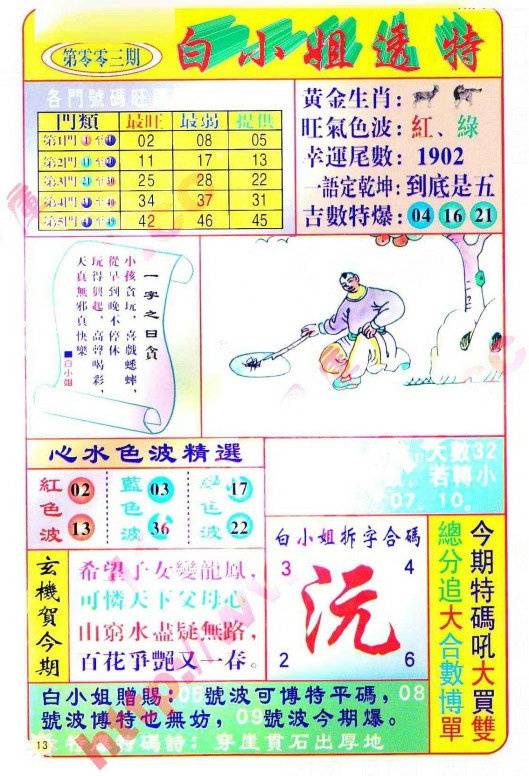 第零零三期
白小姐透特
各門號碼旺
門類 最旺 最弱 提供
第1門 1 至 02 08 05
第2門 至 11 17 13
第3門 至 25 28 22
第4門 至 34 37 31
第5門 至 49 42 46 45
黃金生肖：
旺氣色波：紅、綠
幸運尾數：1902
一語定乾坤：到底是五
吉數特爆：04 16 21
一字之曰貪
小孩貪玩，喜戲蟋蟀，
從早到晚不停休
玩得興起，高聲喝彩，
天真無邪真快樂
■白小姐
心水色波精選
紅色波 02 13
藍色波 03 36
色波 17 22
大數32
若轉小
07．10。
玄機賀今期
希望子女變龍鳳，
可憐天下父母心
山窮水盡疑無路，
百花爭艷又一春。
白小姐拆字合碼
3 4
沅
2 6
今期特碼吼大買雙
總分追大合數博單
白小姐贈賜：05號波可博特平碼，08
號波博特也無妨，09號波今期爆。
碼詩：穿崖貫石出厚地
13
http://